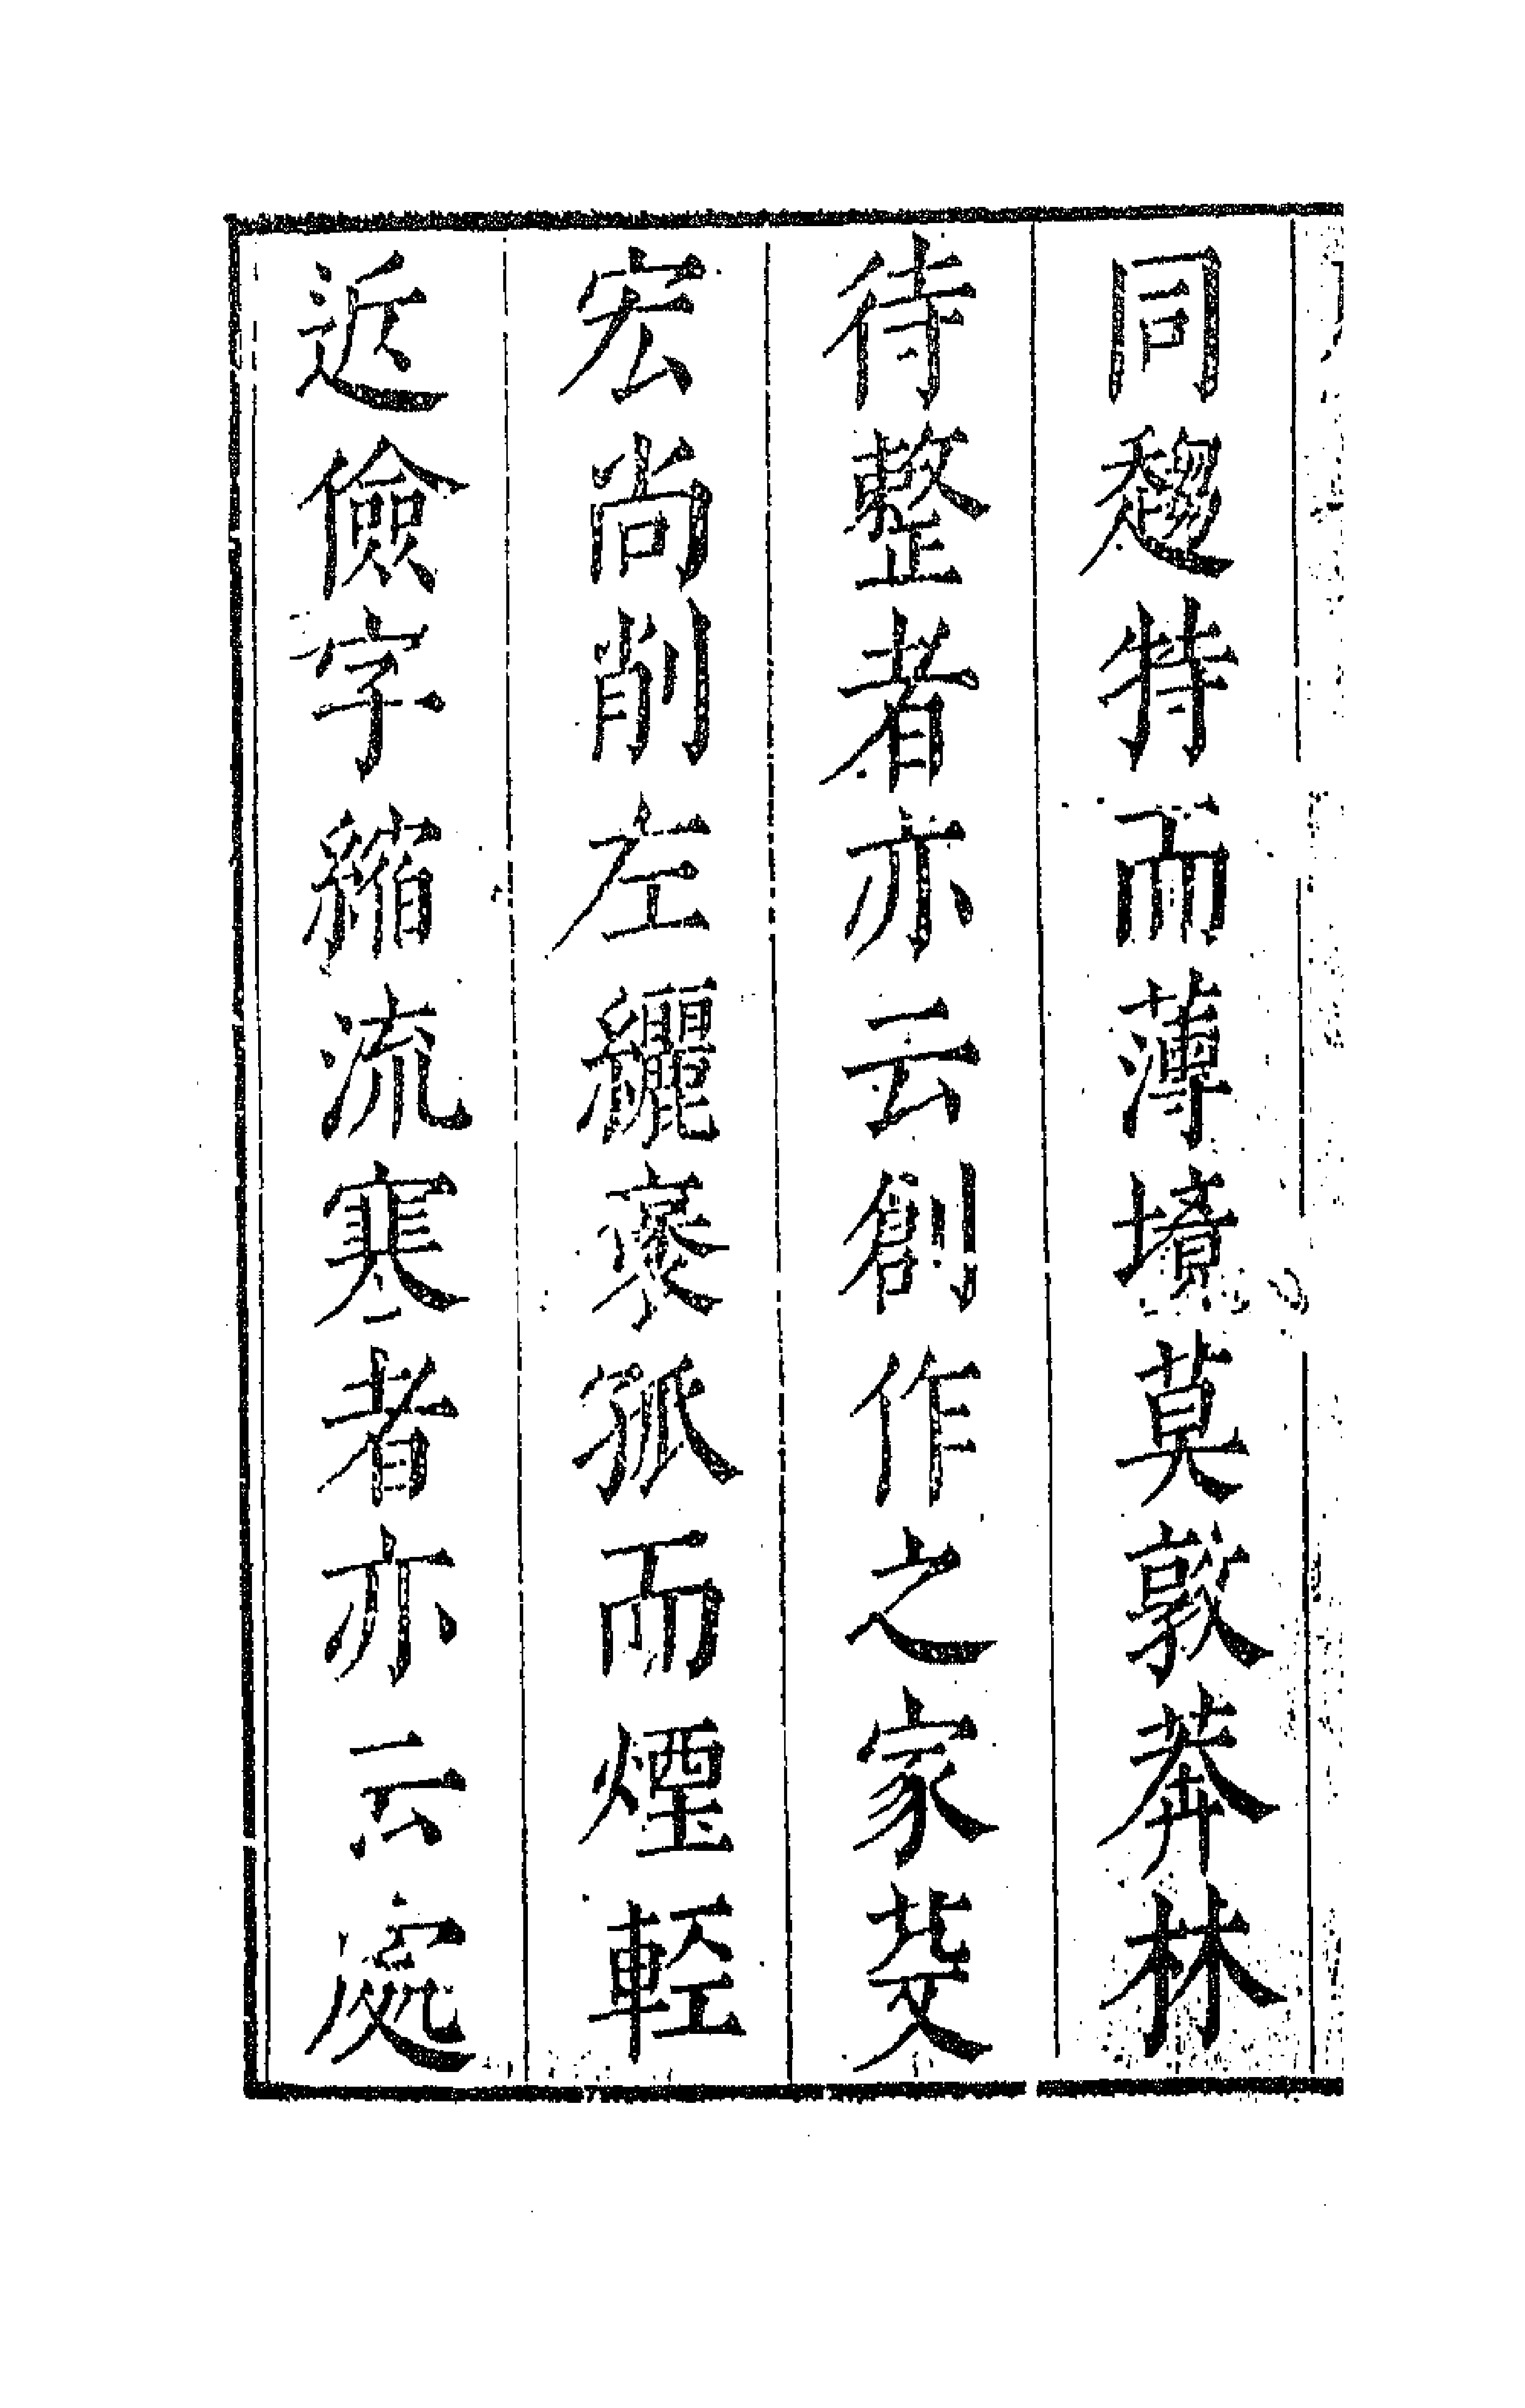 同趨特而薄墳莫敦莽林
待整者亦云創作之家芟
宏尚削左纚孤而煙輕
近儉字縮流寒者亦云處